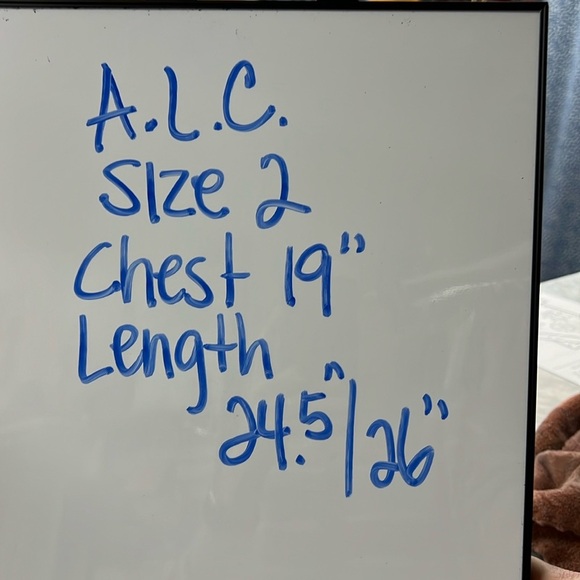 A.L.C.
Size 2
Chest 19"
Length
24.5"/26"